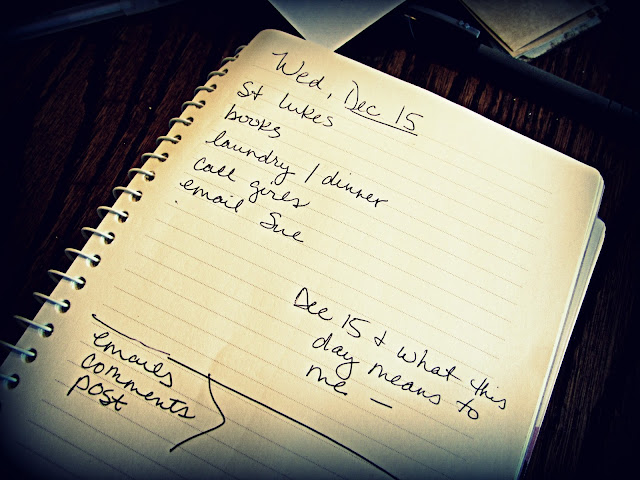 Wed, Dec 15
St Lukes
books
laundry / dinner
call girls
email Sue
Dec 15 + what this
day means to
me —
emails
comments
post